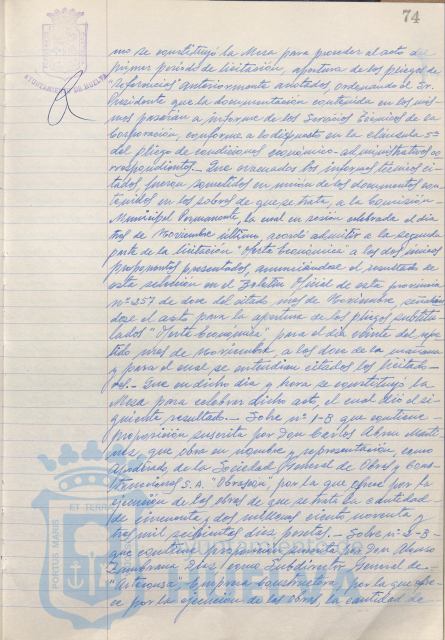 74
AYUNTAMIENTO DE HUELVA
mo se constituyó la Mesa para proceder al acto del
primer período de licitación, apertura de los pliegos de
"Referencias" anteriormente anotados, ordenando el Sr.
Presidente que la documentación contenida en los mis-
mos pasaran a informe de los Servicios Técnicos de la
Corporación, conforme a lo dispuesto en la cláusula 5ª
del pliego de condiciones económico-administrativas co-
rrespondientes.- Que evacuados los informes técnicos ci-
tados fueron sometidos en unión de los documentos con-
tenidos en los sobres de que se trata, a la Comisión
Municipal Permanente, la cual en sesión celebrada el día
tres de Noviembre último, acordó admitir a la segunda
parte de la licitación "Oferta Económica" a los dos únicos
proponentes presentados, anunciándose el resultado de
esta selección en el Boletín Oficial de esta provincia
nº 257 de doce del citado mes de Noviembre, señalán-
dose el acto para la apertura de los pliegos subtitu-
lados "Oferta Económica" para el día veinte del repe-
tido mes de Noviembre, a las doce de la mañana
y para el cual se entendían citados los licitado-
res.- Que en dicho día y hora se constituyó la
Mesa para celebrar dicho acto, el cual dió el si-
guiente resultado.- Sobre nº 1-B que contiene
proposición suscrita por Don Carlos Abreu
que obra en nombre y representación, como
Apoderado de la Sociedad General de Obras y Cons-
trucciones S.A. "Obrascon", por la que ofrece por la
ejecución de las obras de que se trata la cantidad
de cincuenta y dos millones ciento noventa y
tres mil seiscientas diez pesetas.- Sobre nº 2-B-
que contiene proposición suscrita por Don Alonso
Zambrana como Subdirector General de
Empresa Constructora, por la que ofre-
ce por la ejecución de las obras, la cantidad de
PORTUS MARIS
ET TERRAE
HUELVA